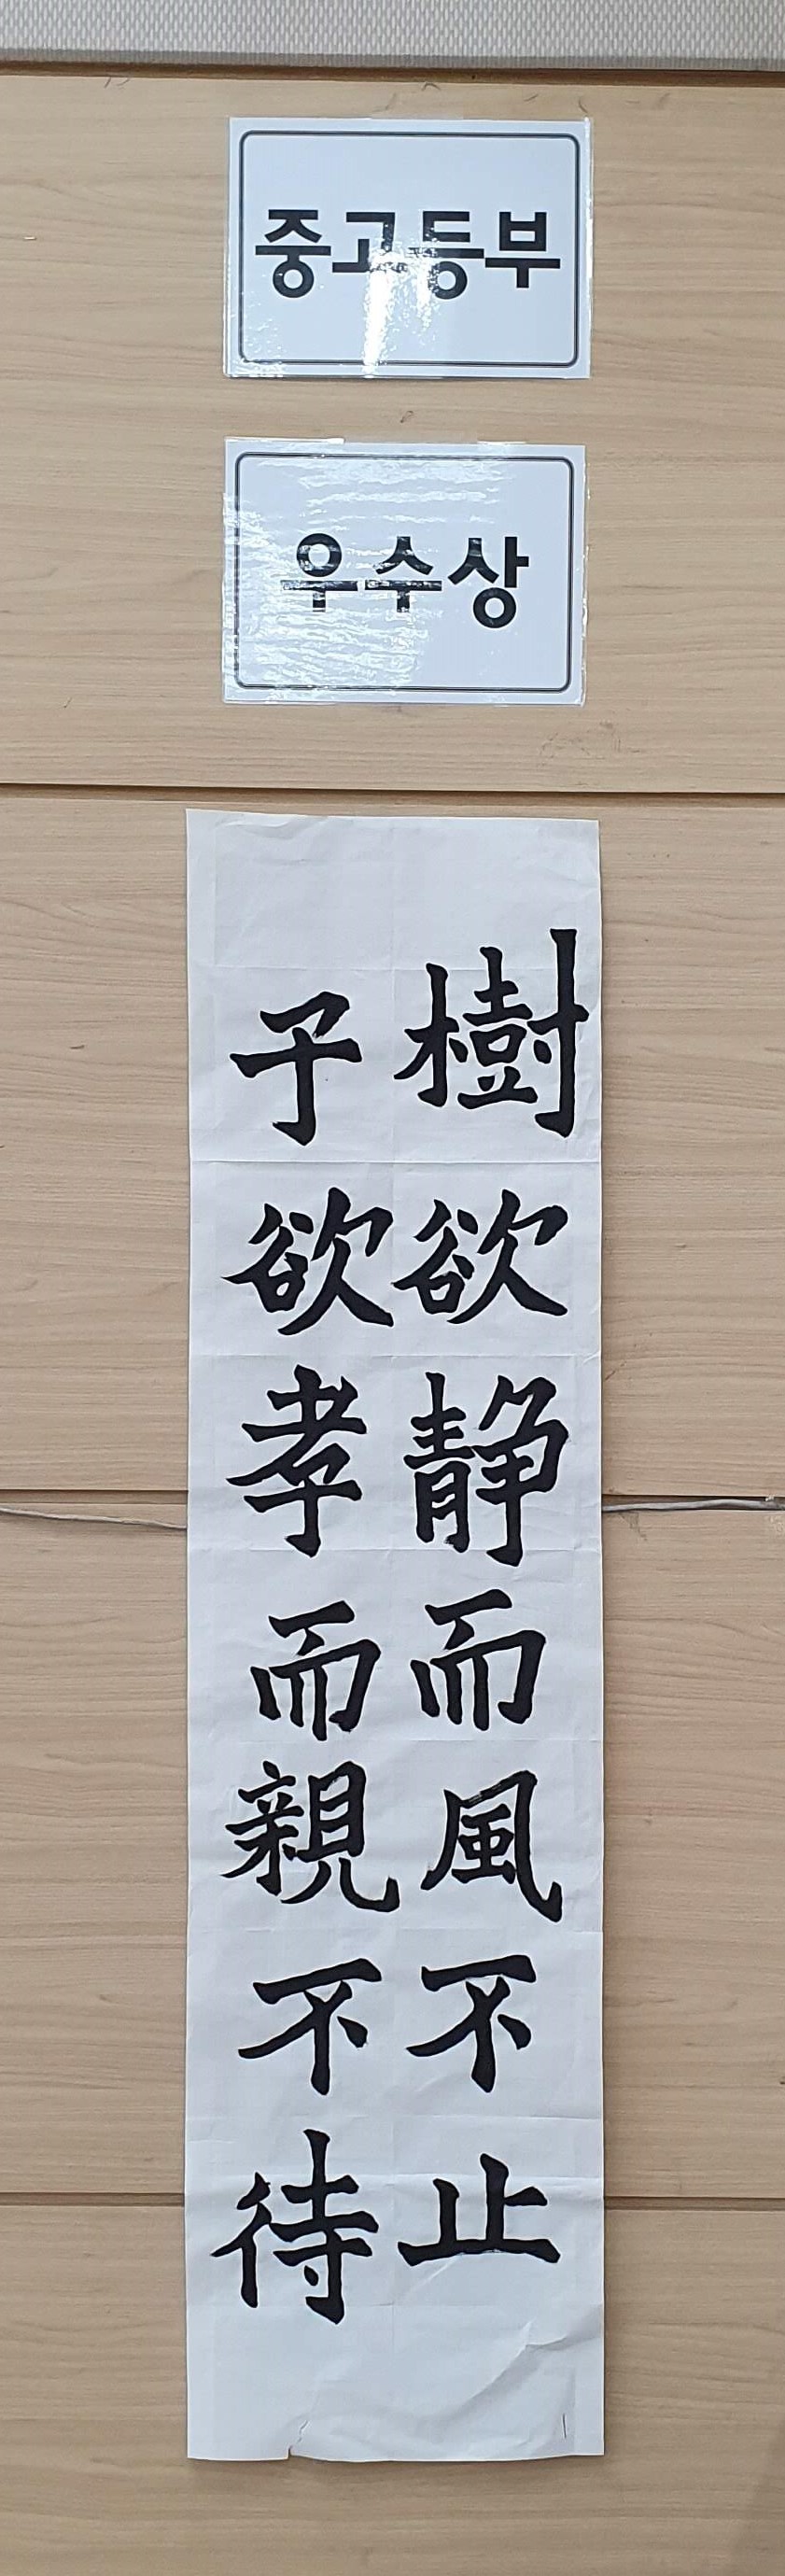 중고등부
우수상
樹欲静而風不止
子欲孝而親不待